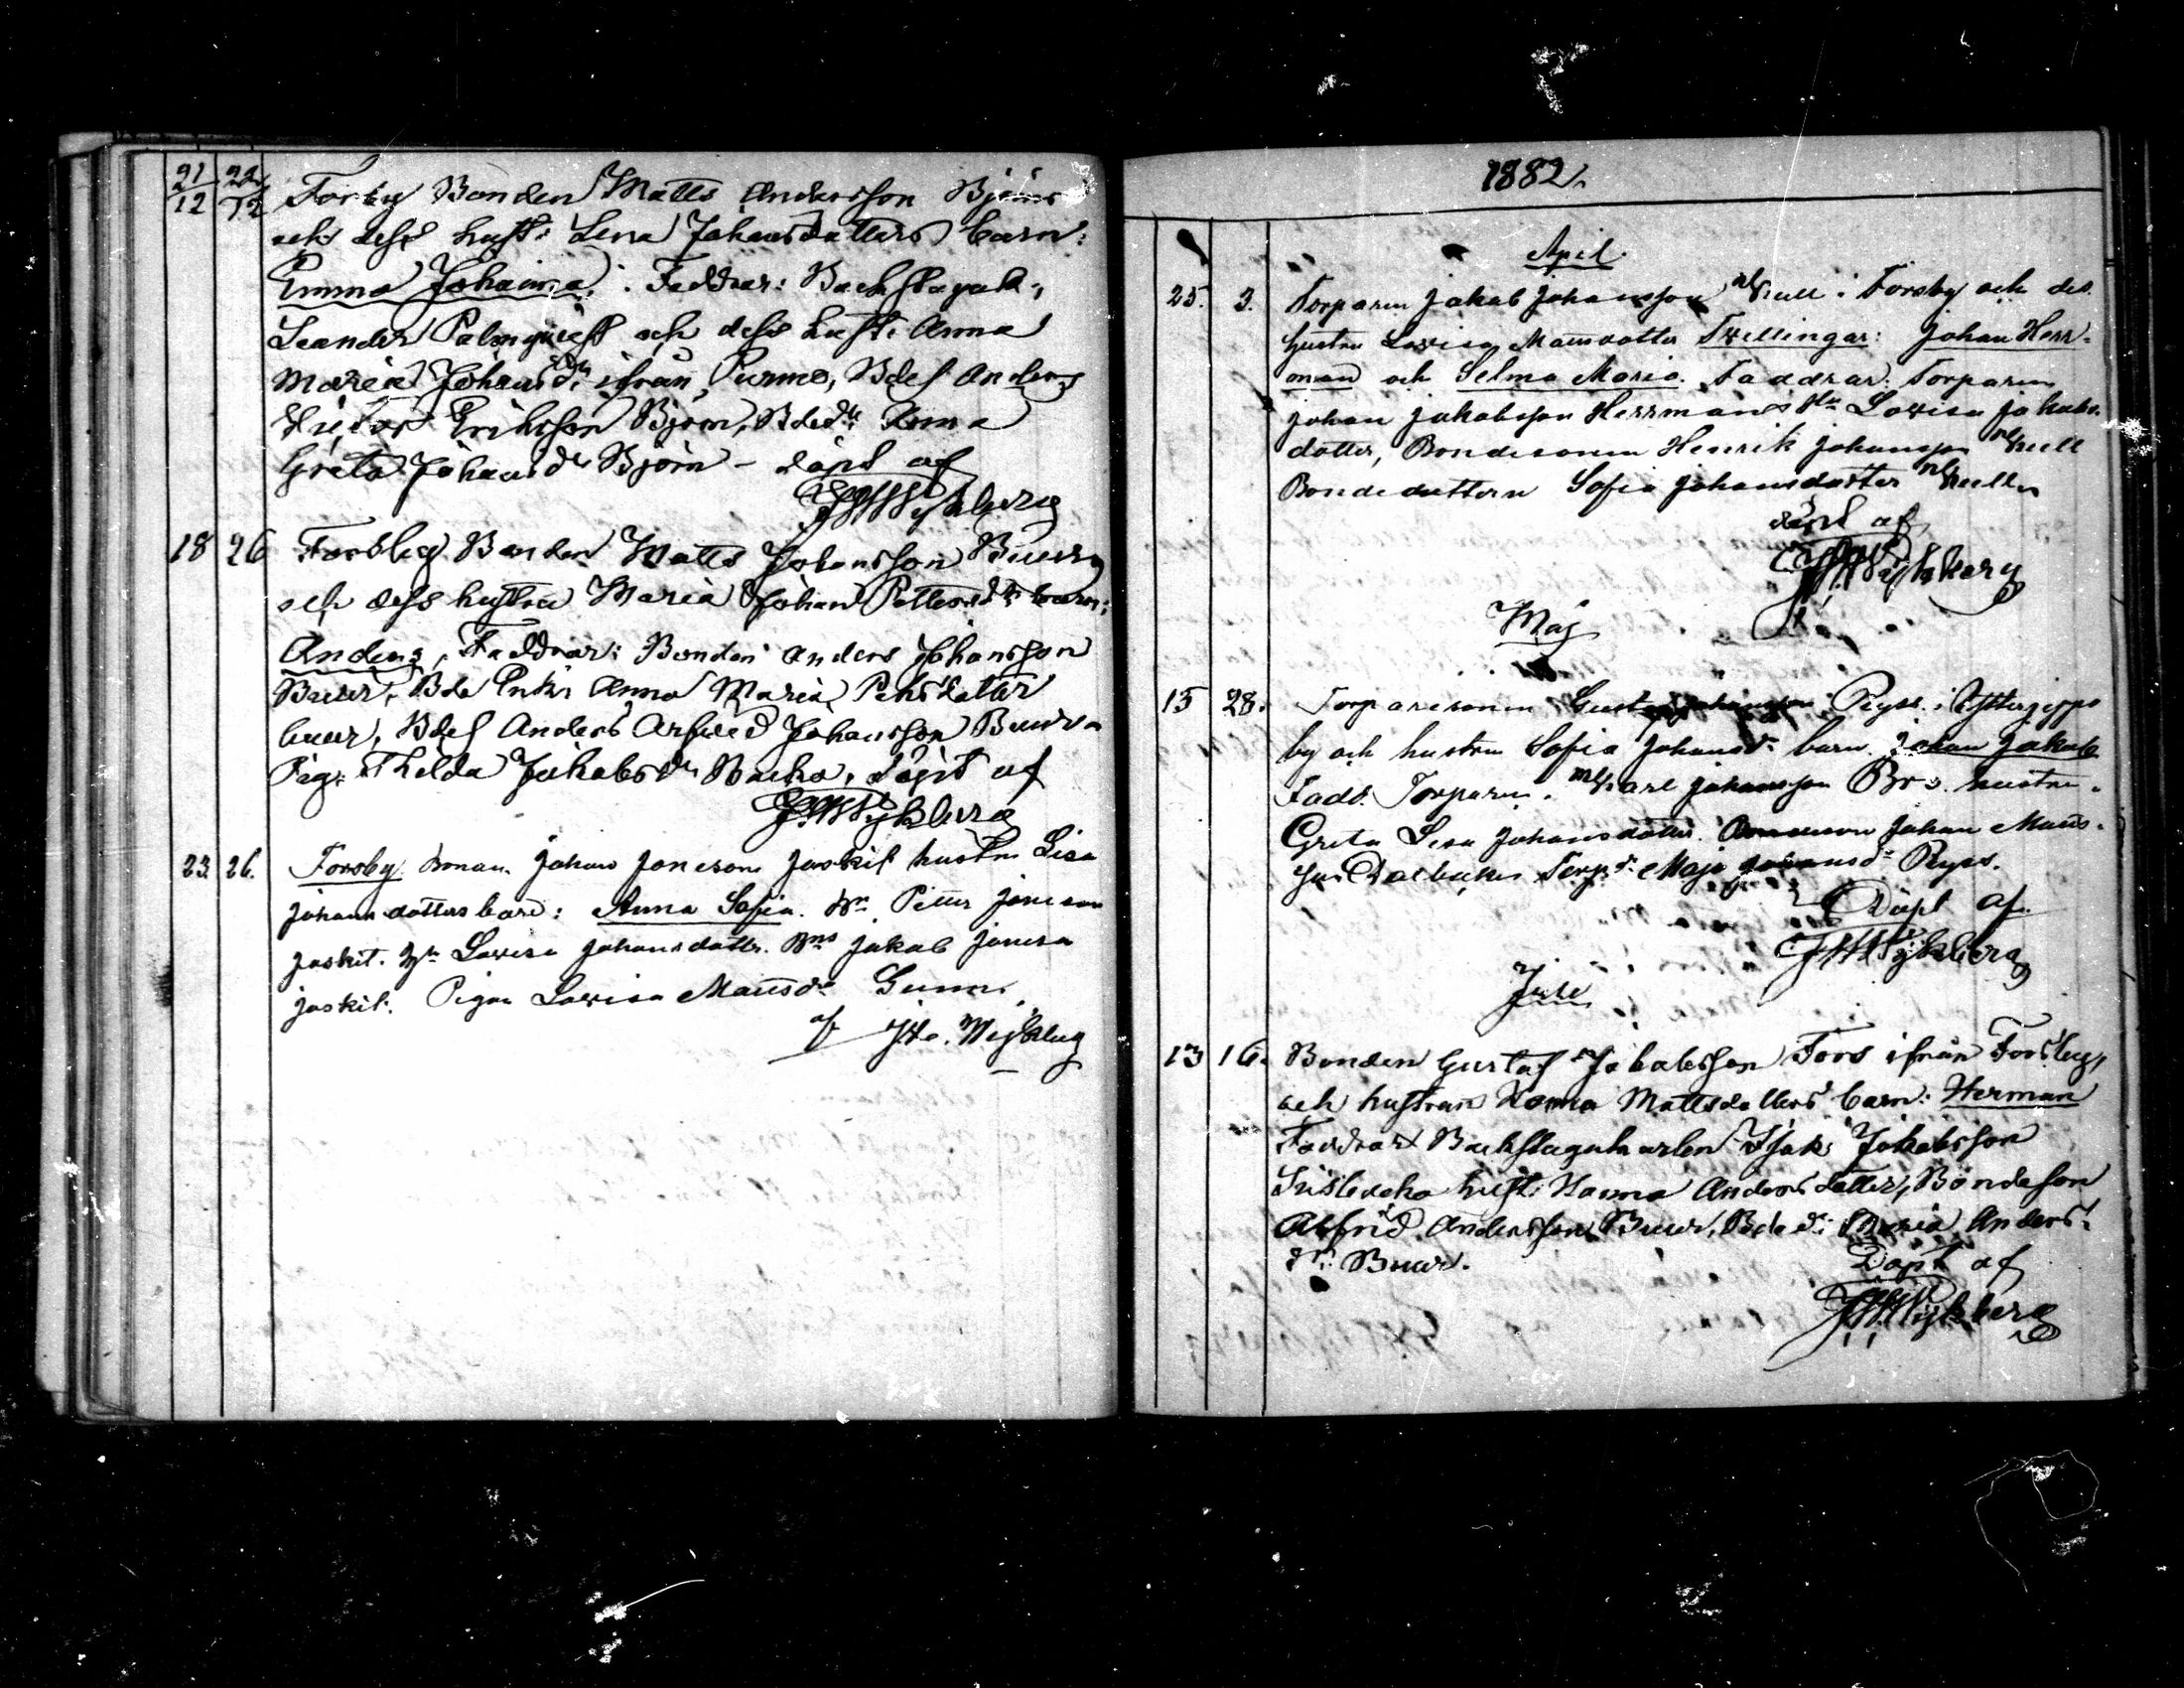 21/12 22/12 Forby Bonden Matts Andersson Björn
och dess hust: Lena Johansdotters barn:
Emma Johanna. Faddrar: Backstaguk.,
Leander Palmquist och dess hust: Anna
Maria Johans dr ifrån Purmo, Bdes Anders
Victor Eriksson Björn, Bded:
Greta Johansdr Björn - döpt af
18 26 Forsby Bonden Matts Johansson Buur
och dess hustru Maria Johan barn:
Anders, Faddrar: Bonden Anders Johansson
Buur, Bde Enkn Anna Maria Pehrsdotter
buur, Bdes Anders Arfwed Johansson Buur
Pig: Thelda Jakobsdr Backa, döpt af
23. 26. Forsby Bonan. Johan Joneson Jaskil hustru Lisa
Johansdotters barn: Anna Sofia. Bn Petter Joneson
jaskil. Hu Lovisa Johansdottr. Bns Jakob Jonesn
jaskil. Pigan Lovisa Mattsdr Gunnr
af
1882.
April.
25. 3. Torparen Jakob Johansson i Forsby och des
hustru Lovisa Mattsdotter Twillingar: Johan Herr-
man och Selma Maria. Faddrar: Torparen
Johan Jakobsson Herrmans Hu Lovisa Jakobs
dotter, Bondesonen Henrik Johansson
Bondedottern Sofia Johansdotter
döpt af
Maj
15 28. Torparesonen Gustaf Johansson Pyss. i Ytterjeppo
by och hustru Sofia Johansdr barn. Johan Jakob
Fadd. Torparen. Karl Johansson Bro. hustru.
Greta Lisa Johansdotter. Johan Matts-
son Torp.dr Maja Johansdr Pyss.
Döpt af.
Juli
13 16. Bonden Gustaf Jakobsson Fors ifrån Forsby,
och hustrun Mattsdotters barn: Herman
Faddrar Backstaguharlen Isak Jakobsson
hust: Hanna Andersdotter, Bondeson
Andersson Buur, Bde d: Maria Anders
dr: Buur.
Döpt af